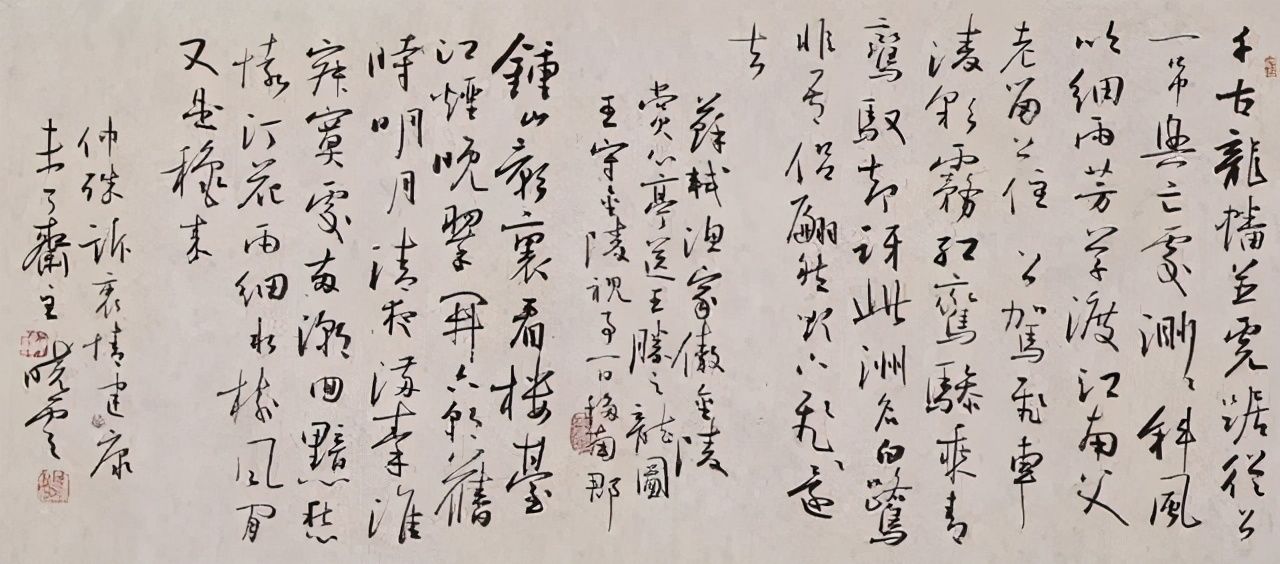 千古龍蟠並虎踞從公
一吊興亡處渺〻斜風
吹細雨芳草渡江南父
老留公住公駕飛車
凌彩霧紅鸞驂乘青
鸞馭却訝此洲名白鷺
非吾侶翩然欲下飛還
去
蘇軾漁家傲金陵
賞心亭送王勝之龍圖
王守金陵視事一日移南郡
鍾山影裏看樓臺
江煙晚翠開六朝舊
時明月清夜滿秦淮
寂寞處兩潮回黯愁
懷汀花雨細水樹風閑
又是穐來
仲殊訴衷情建康
未了齋主曉雲